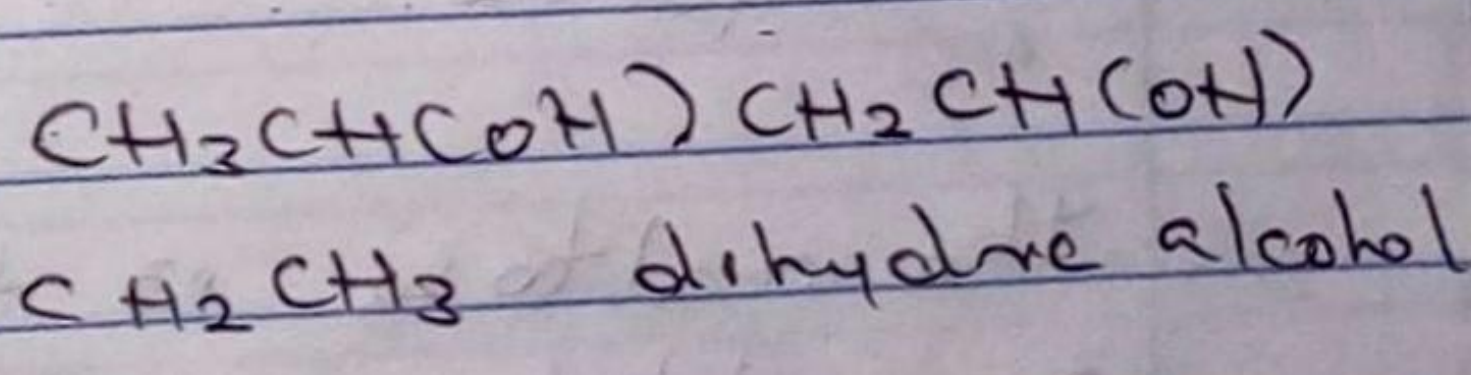 CH3CH(OH)CH2CH(OH)
CH2CH3 dihydric alcohol